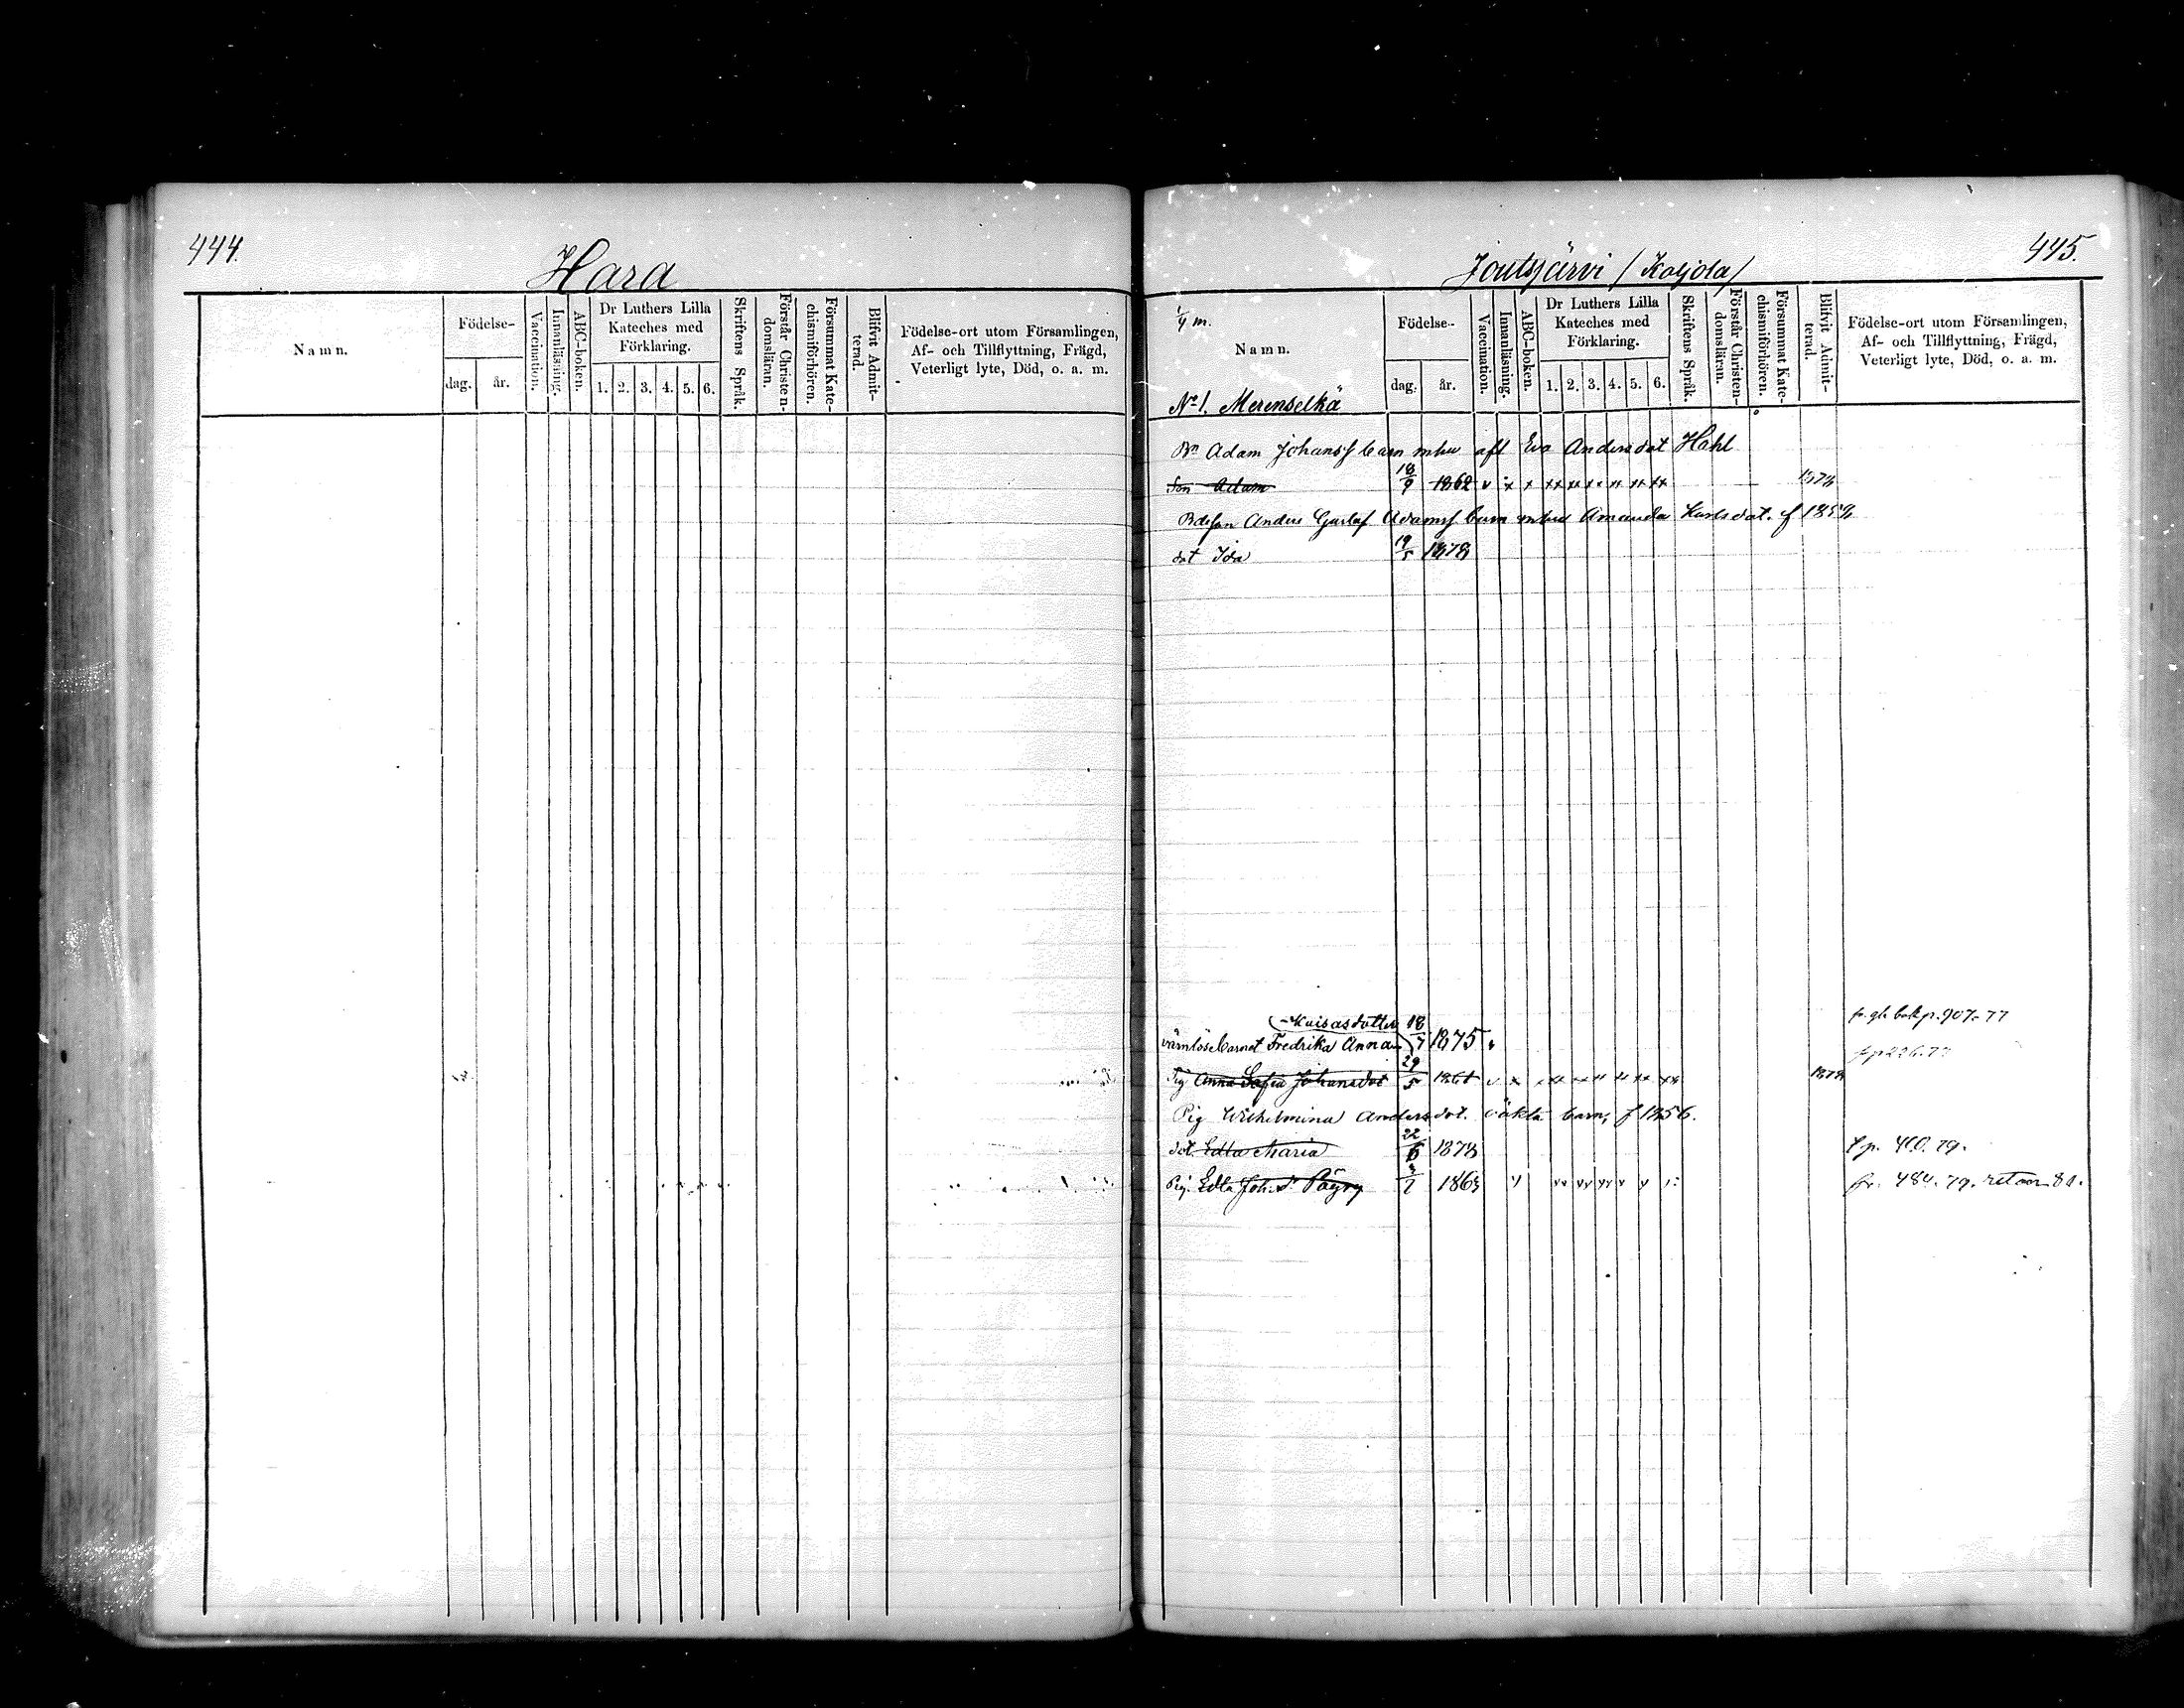 444.
Hara
Namn.
Födelse-
dag.
år.
Vaccination.
Innanläsning.
ABC-boken.
Dr Luthers Lilla
Kateches med
Förklaring.
1. 2. 3. 4. 5. 6.
Skriftens Språk.
Förstår Christen-
domsläran.
Försummat Kate-
chismiförhören.
Blifvit Admit-
terad.
Födelse-ort utom Församlingen,
Af- och Tillflyttning, Frägd,
Veterligt lyte, Död, o. a. m.
445.
Joutsjärvi /Koljola/
¼ m.
Namn.
Födelse-
dag.
år.
Vaccination.
Innanläsning.
ABC-boken.
Dr Luthers Lilla
Kateches med
Förklaring.
1. 2. 3. 4. 5. 6.
Skriftens Språk.
Förstår Christen-
domsläran.
Försummat Kate-
chismiförhören.
Blifvit Admit-
terad.
Födelse-ort utom Församlingen,
Af- och Tillflyttning, Frägd,
Veterligt lyte, Död, o. a. m.
No 1. Merenselkä
Bn Adam Johanss barn mhu afl Eva Andersdot Hahl
Son Adam 18/9 1862 1878
Bdeson Anders Gustaf Adamss barn mhu Amanda Karlsdot. f 1859
dot Ida 19/5 1878
-Kaisasdotter
värnlösebarnet Fredrika Anna 18/7 1875 p. 907. 77
Pig Anna Sofia Johansdot 29/5 1861 1878
Pig Wilhelmina Andersdot. oäkta barn, f 1856.
dot. Edla Maria 22/6 1878 t p. 460. 79.
Pig. Edla Joh.dr Päyry 1863 fr. 484. 79. retour 81.